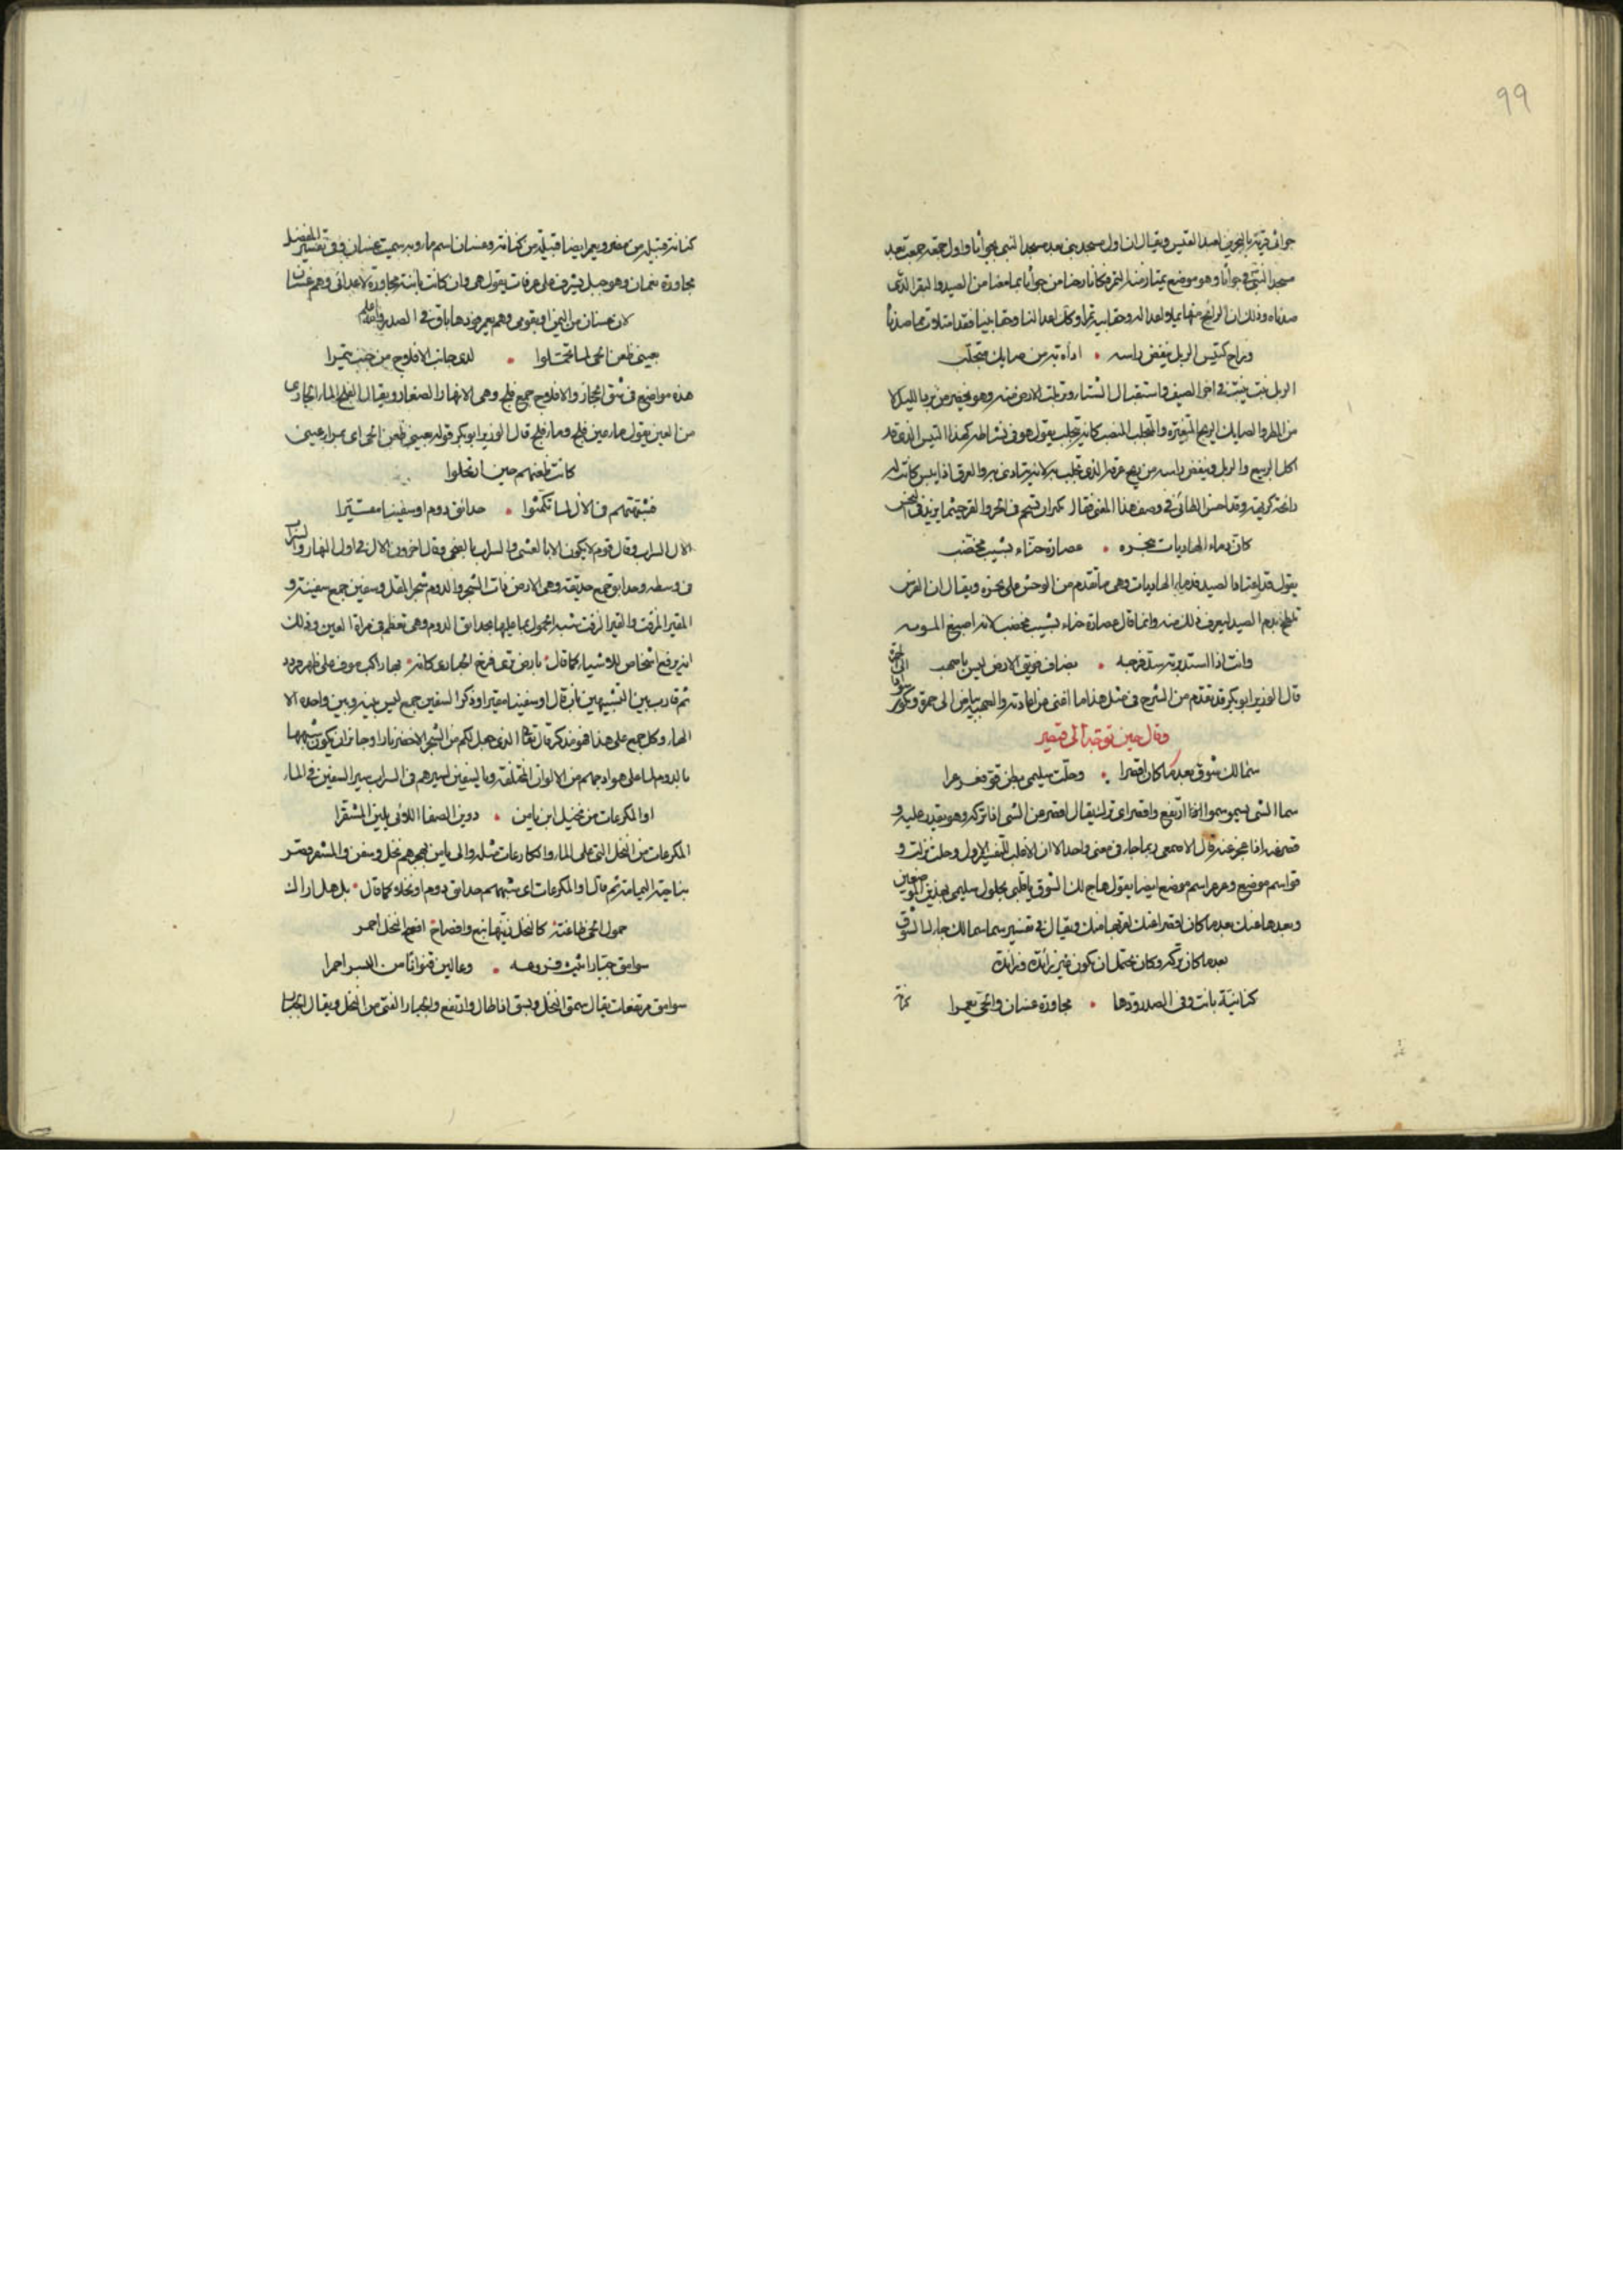 99
جواثى قرية بالبحرين لعبد القيس ويقال ان اول مسجد بنى بعد مسجد النبي بجواثا واول جمعة جمعت بعد
مسجد النبي في جواثا وهو موضع يمتار منه التمر فكانا رحنا من جواثا بما معنا من الصيد والبقر الذي
صدناه وذلك ان الرائح منها يملا اعداله وحقايبه تمرا وكان اعدالنا وحقايبنا فقد امتلات مما صدنا
وراح كتيس الربل ينفض راسه • اذاة به من صايك متحلب
الربل نبت ينبت في اخر الصيف واستقبال الشتاء وتربلت الارض منه وهو يخضر من برد الليل لا
من المطر والصايك الريح المتغيرة والمتحلب المنصب كانه يتحلب يقول هو في نشاطه كهذا التيس الذي قد
اكل الربيع والربل وينفض راسه من ريح عرقه الذي تحلب به لانه يتاذى به والعرق اذا يبس كانت له
رائحة كريهة وقد احسن الطائي في وصف هذا المعنى فقال
كان دماء الهاديات بنحره • عصارة حناء بشيب مخضب
يقول قد اعتاد الصيد فدماء الهاديات وهي ما تقدم من الوحش على نحره ويقال ان الفرس
تلطخ بدم الصيد ليعرف ذلك منه وانما قال عصارة حناء بشيب مخضب لانه اصبغ
وانت اذا استدبرته سد فرجه • بضاف فويق الارض ليس باصهب
قال الوزير ابو بكر قد تقدم من الشرح في مثل هذا ما اغنى عن اعادته والصهبة بياض الى حمرة
وقال حين توجه الى قيصر
سما لك شوق بعد ما كان اقصرا • وحلت سليمى بطن قو فعرعرا
سما الشي يسمو سموا اذا ارتفع واقصر اي ترك يقال اقصر عن الشي اذا تركه وهو يقدر عليه و
قصر عنه اذا عجز عنه قال الاصمعي ربما جاء في معنى واحد الا ان الاغلب التفسير الاول وحلت نزلت و
قو اسم موضع وعرعر اسم موضع ايضا يقول هاج لك الشوق يا قلبي بحلول سليمى بهذين الموضعين
وبعدها عنك بعد ما كان اقصر عنك لقربها منك ويقال في تفسير سما سما لك جاء لك الشوق
بعد ما كان تركه وكان يحتمل ان يكون غير زائدة وزائدة
كنانية بانت وفي الصدر ودها • مجاورة غسان والحي يعمرا
كنانة
كنانة قبيلة من مضر ويعمر ايضا قبيلة من كنانة وغسان اسم ماء وبه سميت غسان وفي تفسير المفضل
مجاورة نعمان وهو جبل يشرف على عرفات يقول هي وان كانت باينة مجاورة لاعدائي وهم غسان
لان غسان من اليمن او بقومي وهم يعمر فودها باق في الصدر والله اعلم
بعيني ظعن الحي لما تحملوا • لدى جانب الافلاج من جنب تيمرا
هذه مواضع في شق الحجاز والافلاج جمع فلج وهي الانهار الصغار ويقال الفلج الماء الجاري
من العين يقول ماء عين فلج وماء فلج قال الوزير ابو بكر قوله بعيني ظعن الحي اي بمراى عيني
كانت ظعنهم حين ارتحلوا
فشبهتهم في الال لما تكمشوا • حدائق دوم او سفينا مقيرا
الال السراب وقال قوم لا يكون الا بالعشي والسراب بالضحى وقال اخرون الال في اول النهار والسراب
في وسطه وحدايق جمع حديقة وهي الارض ذات الشجر والدوم شجر المقل وسفين جمع سفينة و
المقير المزفت والقير الزفت شبه الحمول بما عليها بحدائق الدوم وهي تعظم في مراة العين وذلك
انه يرفع اشخاص الاشياء كما قال • بارض ترى فرخ الحبارى كانه • بها راكب موف على ظهر قردد
ثم قارب بين التشبيهين بان قال او سفينا مقيرا وذكر السفين جمع ليس بينه وبين واحده الا
الهاء وكل جمع على هذا فهو مذكر قال تعالى الذي جعل لكم من الشجر الاخضر نارا وجائز ان يكون شبهها
بالدوم لما على هوادجهم من الالوان المختلفة وبالسفين لسيرهم في السراب سير السفين في الماء
او المكرعات من نخيل ابن يامن • دوين الصفا اللائي يلين المشقرا
المكرعات من النخل التي على الماء والكارعات مثله وال يامن بهجر لهم نخل وسفن والمشقر قصر
بناحية اليمامة ثم قال او المكرعات اي شبههم حدائق دوم او نخلا كما قال • بل هل اراك
حمول الحي ظاعنة • كالنخل زينها ينع وافضاح • افضح النخل احمر
سوامق جبار اثيث فروعه • وعالين قنوانا من البسر احمرا
سوامق مرتفعات يقال سمق النخل وبسق اذا طال وارتفع والجبار الفتي من النخل ويقال الجبار